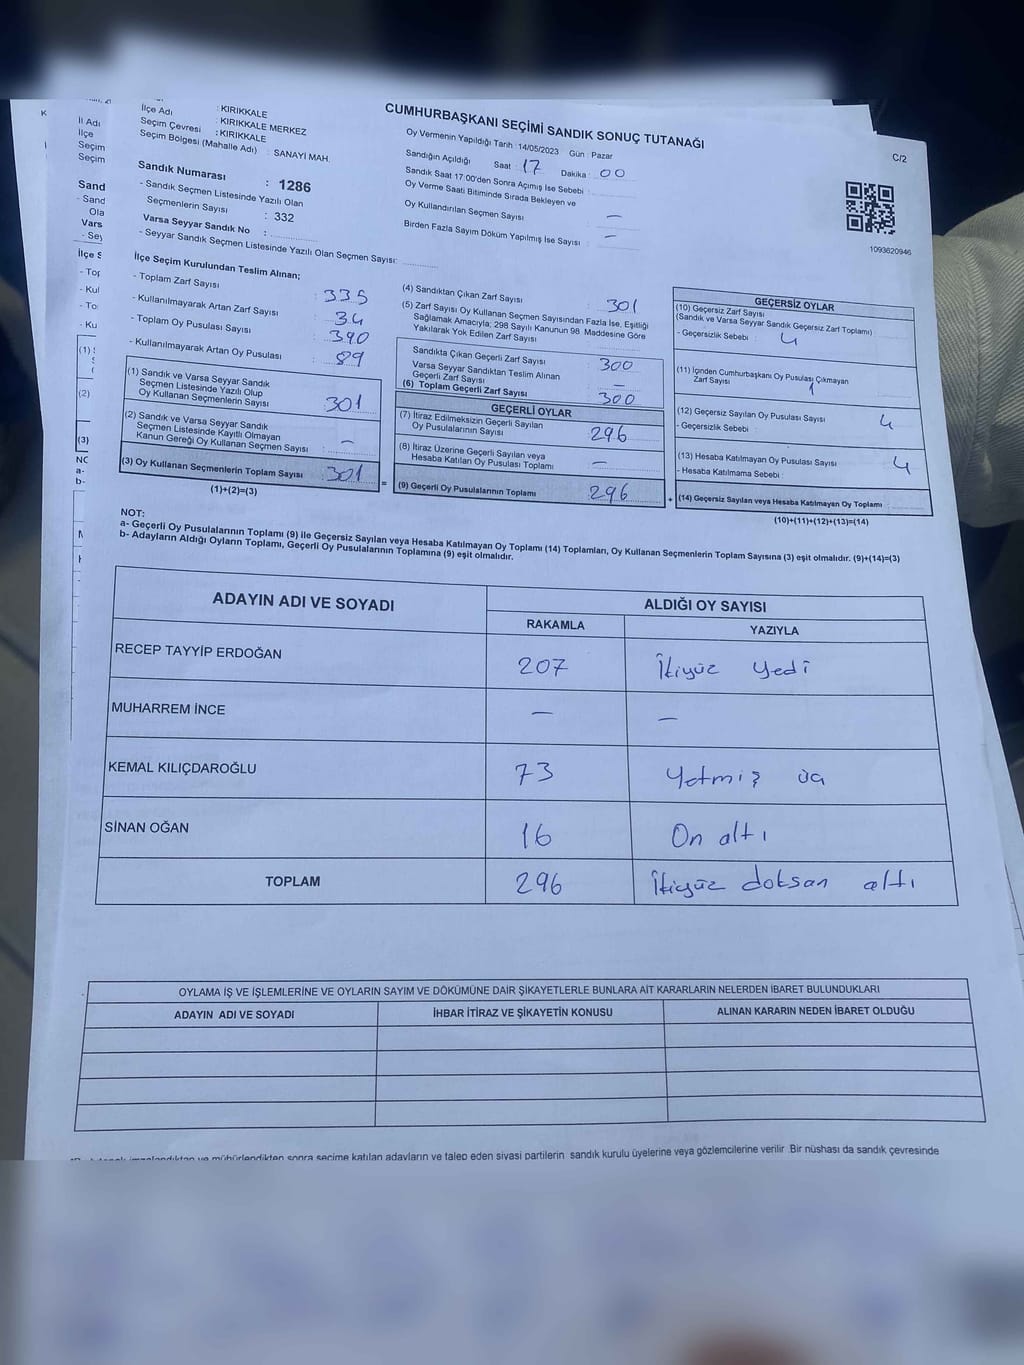 CUMHURBAŞKANI SEÇİMİ SANDIK SONUÇ TUTANAĞI
C/2
: KIRIKKALE
İlçe Adı : KIRIKKALE MERKEZ
Seçim Çevresi : KIRIKKALE
Seçim Bölgesi (Mahalle Adı) : SANAYİ MAH.
Sandık Numarası : 1286
- Sandık Seçmen Listesinde Yazılı Olan
Seçmenlerin Sayısı : 332
Varsa Seyyar Sandık No :
- Seyyar Sandık Seçmen Listesinde Yazılı Olan Seçmen Sayısı:
Oy Vermenin Yapıldığı Tarih : 14/05/2023 Gün : Pazar
Sandığın Açıldığı Saat : 17 Dakika : 00
Sandık Saat 17:00'den Sonra Açımış İse Sebebi :
Oy Verme Saati Bitiminde Sırada Bekleyen ve
Oy Kullandırılan Seçmen Sayısı : —
Birden Fazla Sayım Döküm Yapılmış İse Sayısı : —
1093620946
İlçe Seçim Kurulundan Teslim Alınan;
- Toplam Zarf Sayısı : 335
- Kullanılmayarak Artan Zarf Sayısı : 34
- Toplam Oy Pusulası Sayısı : 390
- Kullanılmayarak Artan Oy Pusulası : 89
(1) Sandık ve Varsa Seyyar Sandık
Seçmen Listesinde Yazılı Olup
Oy Kullanan Seçmenlerin Sayısı : 301
(2) Sandık ve Varsa Seyyar Sandık
Seçmen Listesinde Kayıtlı Olmayan
Kanun Gereği Oy Kullanan Seçmen Sayısı : —
(3) Oy Kullanan Seçmenlerin Toplam Sayısı : 301
(1)+(2)=(3)
(4) Sandıktan Çıkan Zarf Sayısı : 301
(5) Zarf Sayısı Oy Kullanan Seçmen Sayısından Fazla İse, Eşitliği
Sağlamak Amacıyla; 298 Sayılı Kanunun 98. Maddesine Göre
Yakılarak Yok Edilen Zarf Sayısı :
Sandıkta Çıkan Geçerli Zarf Sayısı : 300
Varsa Seyyar Sandıktan Teslim Alınan
Geçerli Zarf Sayısı : —
(6) Toplam Geçerli Zarf Sayısı : 300
GEÇERLİ OYLAR
(7) İtiraz Edilmeksizin Geçerli Sayılan
Oy Pusulalarının Sayısı : 296
(8) İtiraz Üzerine Geçerli Sayılan veya
Hesaba Katılan Oy Pusulası Toplamı : —
(9) Geçerli Oy Pusulalarının Toplamı : 296
GEÇERSİZ OYLAR
(10) Geçersiz Zarf Sayısı
(Sandık ve Varsa Seyyar Sandık Geçersiz Zarf Toplamı)
- Geçersizlik Sebebi : 4
(11) İçinden Cumhurbaşkanı Oy Pusulası Çıkmayan
Zarf Sayısı : 1
(12) Geçersiz Sayılan Oy Pusulası Sayısı : 4
- Geçersizlik Sebebi :
(13) Hesaba Katılmayan Oy Pusulası Sayısı : 4
- Hesaba Katılmama Sebebi :
(14) Geçersiz Sayılan veya Hesaba Katılmayan Oy Toplamı :
(10)+(11)+(12)+(13)=(14)
NOT:
a- Geçerli Oy Pusulalarının Toplamı (9) ile Geçersiz Sayılan veya Hesaba Katılmayan Oy Toplamı (14) Toplamları, Oy Kullanan Seçmenlerin Toplam Sayısına (3) eşit olmalıdır. (9)+(14)=(3)
b- Adayların Aldığı Oyların Toplamı, Geçerli Oy Pusulalarının Toplamına (9) eşit olmalıdır.
ADAYIN ADI VE SOYADI ALDIĞI OY SAYISI
RAKAMLA YAZIYLA
RECEP TAYYİP ERDOĞAN 207 İkiyüz yedi
MUHARREM İNCE — —
KEMAL KILIÇDAROĞLU 73 Yetmiş üç
SİNAN OĞAN 16 On altı
TOPLAM 296 İkiyüz doksan altı
OYLAMA İŞ VE İŞLEMLERİNE VE OYLARIN SAYIM VE DÖKÜMÜNE DAİR ŞİKAYETLERLE BUNLARA AİT KARARLARIN NELERDEN İBARET BULUNDUKLARI
ADAYIN ADI VE SOYADI İHBAR İTİRAZ VE ŞİKAYETİN KONUSU ALINAN KARARIN NEDEN İBARET OLDUĞU
imzalandıktan ve mühürlendikten sonra seçime katılan adayların ve talep eden siyasi partilerin sandık kurulu üyelerine veya gözlemcilerine verilir. Bir nüshası da sandık çevresinde